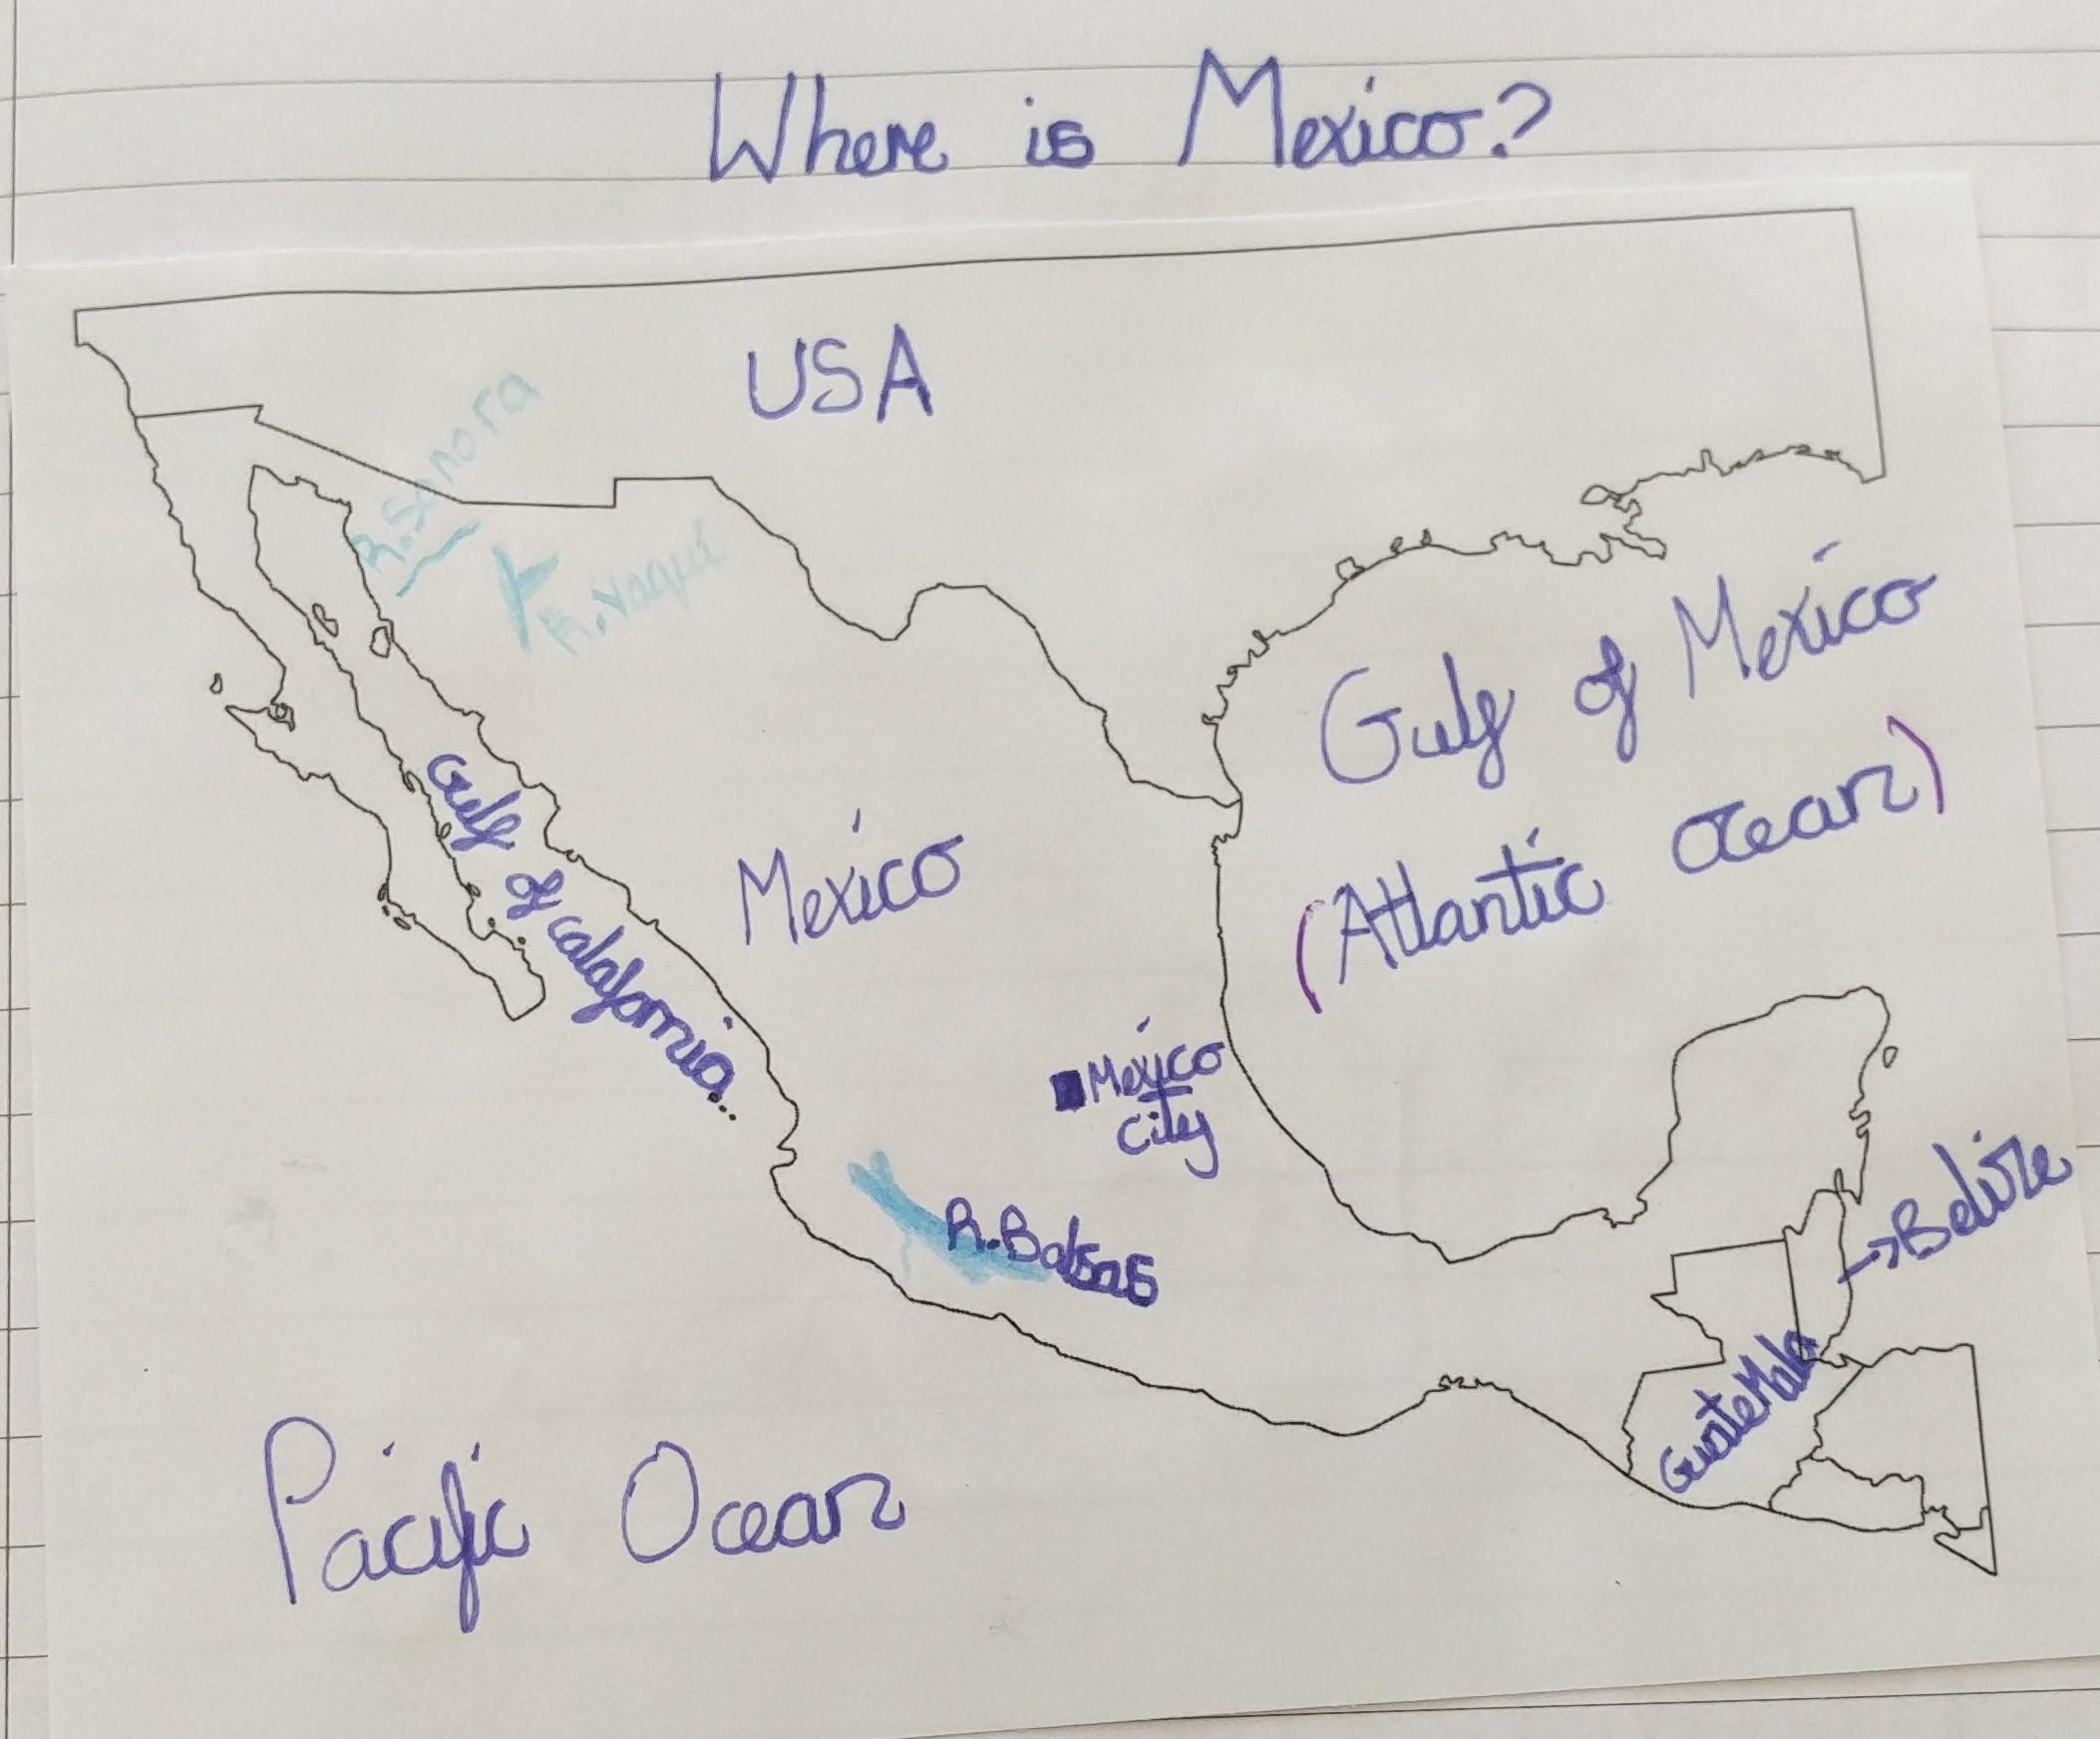 Where is Mexico?
USA
R. Sonora
R. Yaqui
Gulf of Mexico
(Atlantic Ocean)
Gulf of calafornia
Mexico
Mexico
City
R. Balsas
Belize
Guatemala
Pacific Ocean